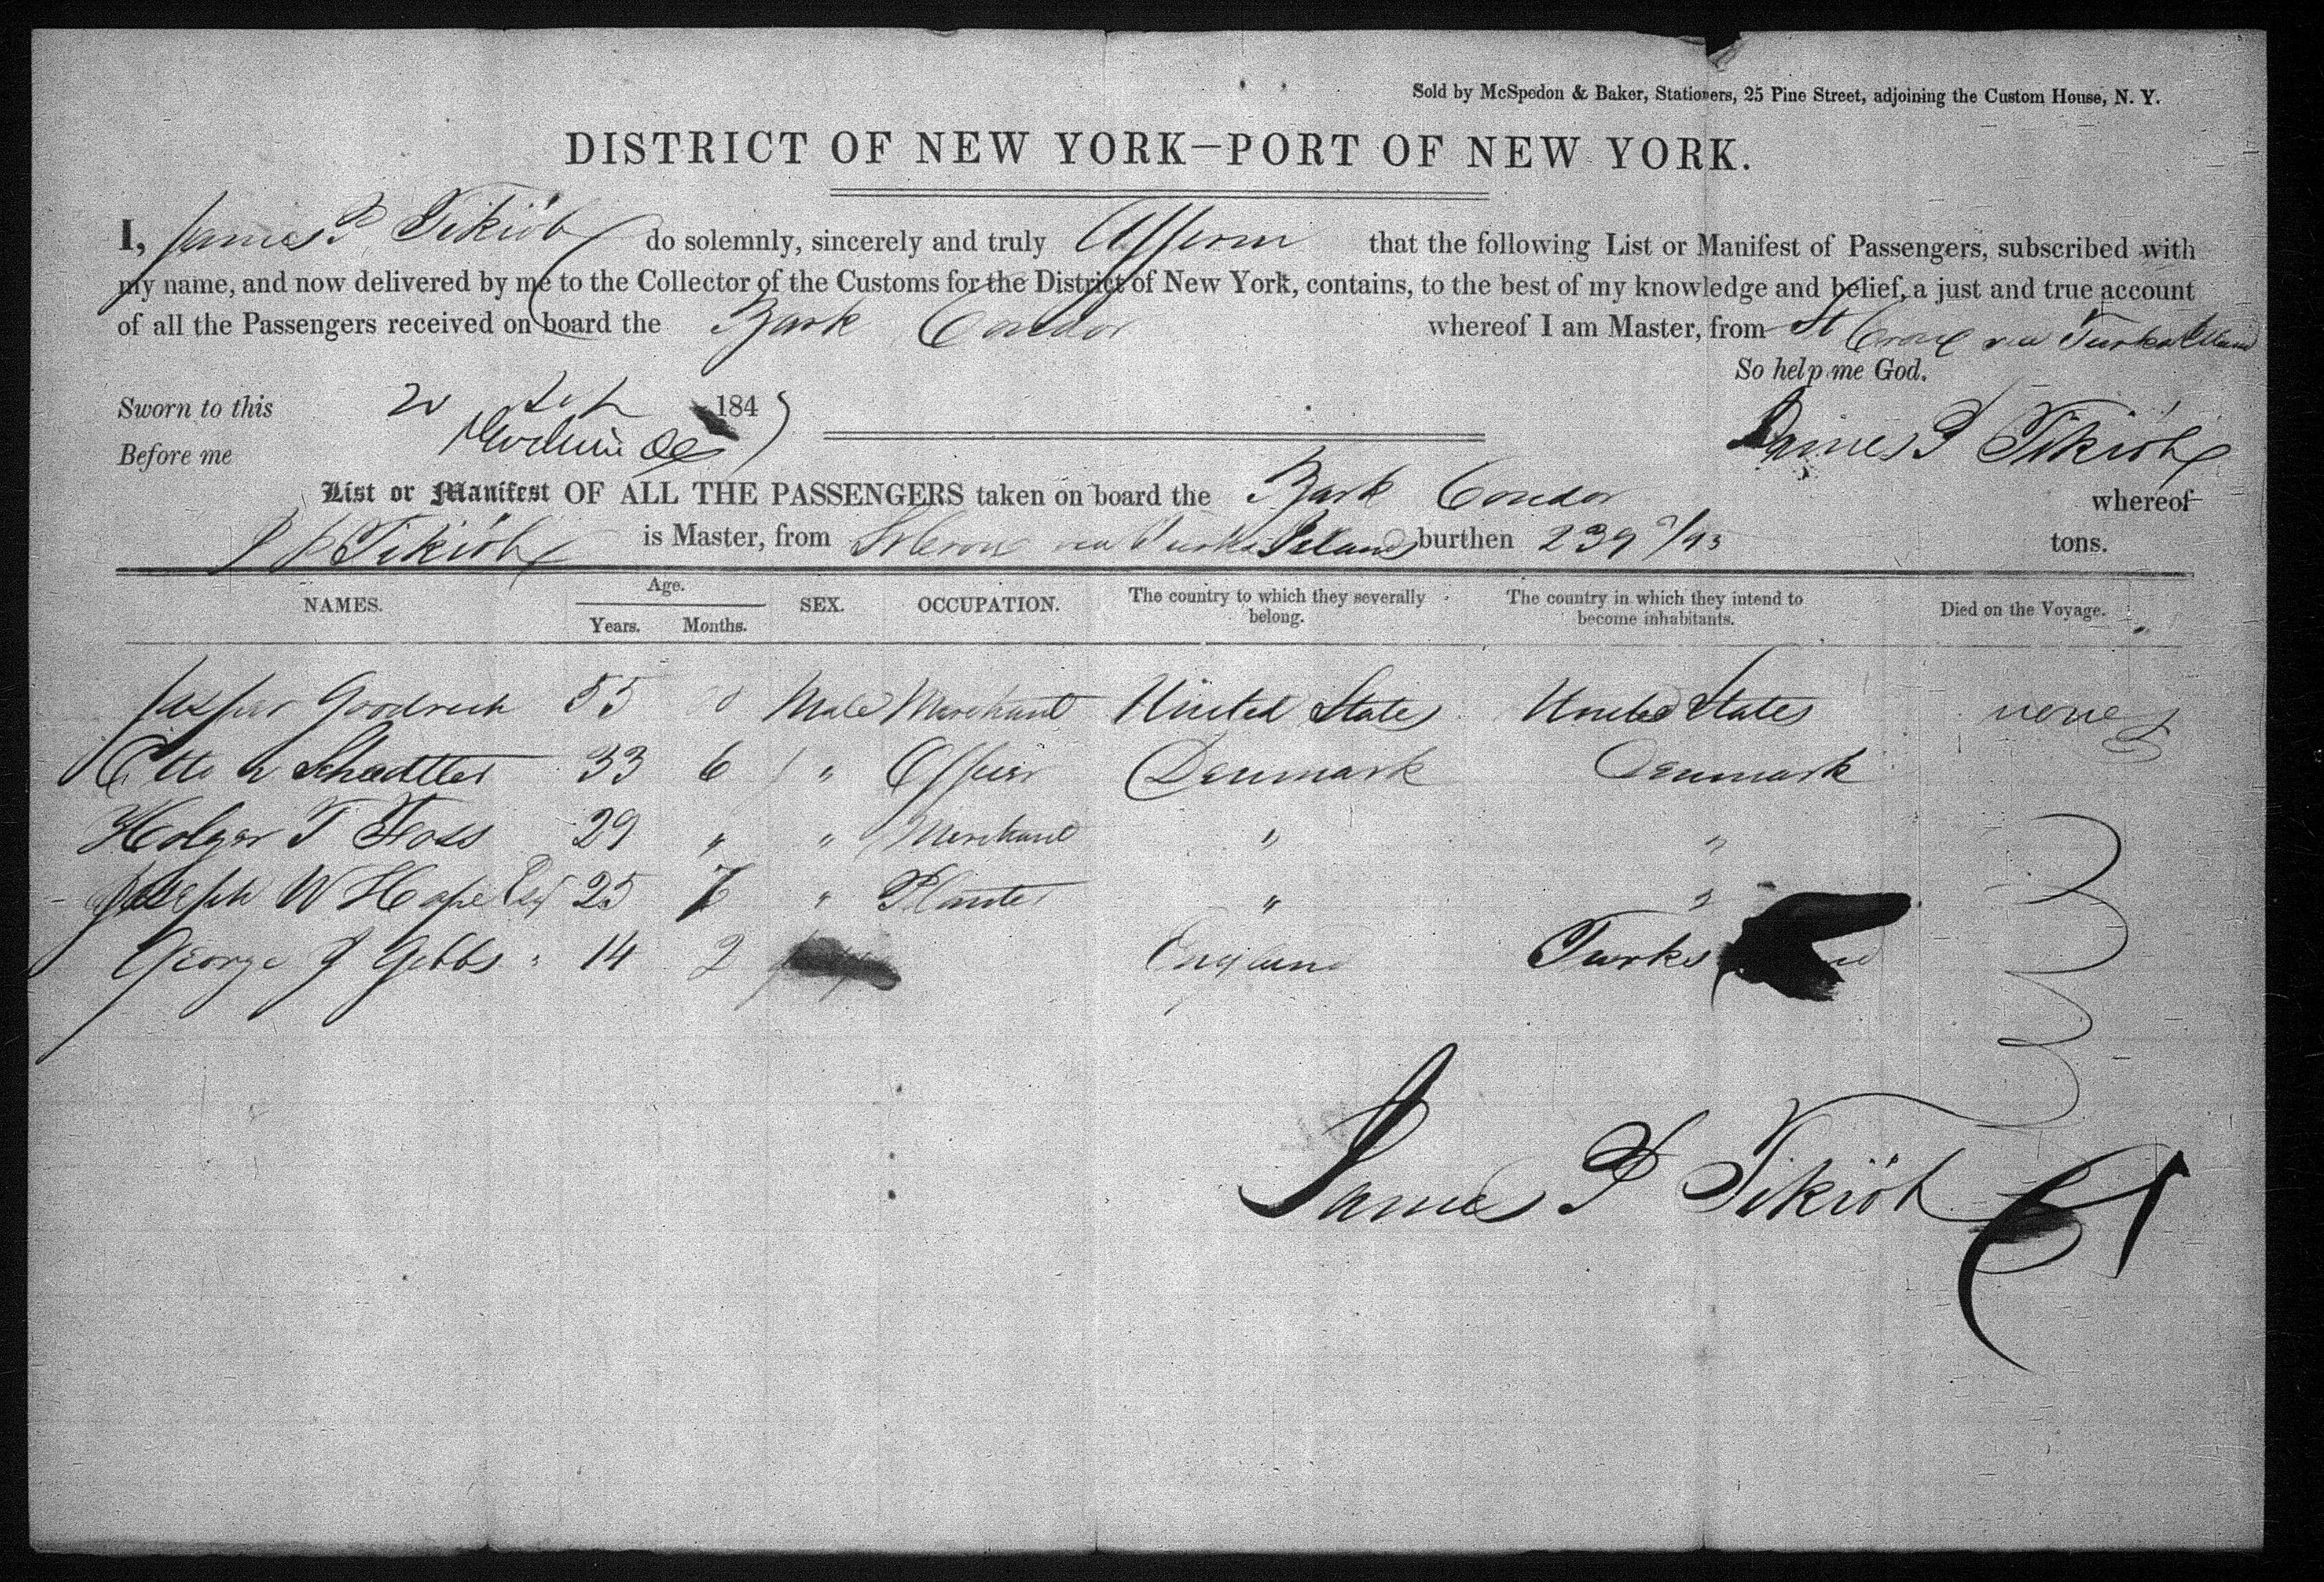 Sold by McSpedon & Baker, Stationers, 25 Pine Street, adjoining the Custom House, N. Y.
DISTRICT OF NEW YORK—PORT OF NEW YORK.
I, James P Tikiöb do solemnly, sincerely and truly Affirm that the following List or Manifest of Passengers, subscribed with
my name, and now delivered by me to the Collector of the Customs for the District of New York, contains, to the best of my knowledge and belief, a just and true account
of all the Passengers received on board the Bark Condor whereof I am Master, from St Croix via Turks Island
So help me God.
Sworn to this 184
Before me
James P Tikiöb
List or Manifest OF ALL THE PASSENGERS taken on board the Bark Condor whereof
J P Tikiöb is Master, from St Croix via Turks Island burthen 239 /95 tons.
NAMES. Age. SEX. OCCUPATION. The country to which they severally belong. The country in which they intend to become inhabitants. Died on the Voyage.
Years. Months.
Goodrich 55 Male Merchant United States United States none
Otto 33 6 " Officer Denmark Denmark
Holger T 29 " " Merchant " "
Joseph W Hope Esq 25 " Planter " "
George J Gibbs " 14 2 England Turks
James P Tikiöb